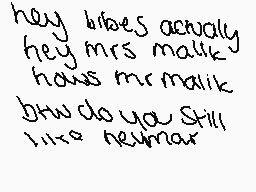 hey bibes actually
hey mrs malik
hows mr malik
btw do ya still
like neymar